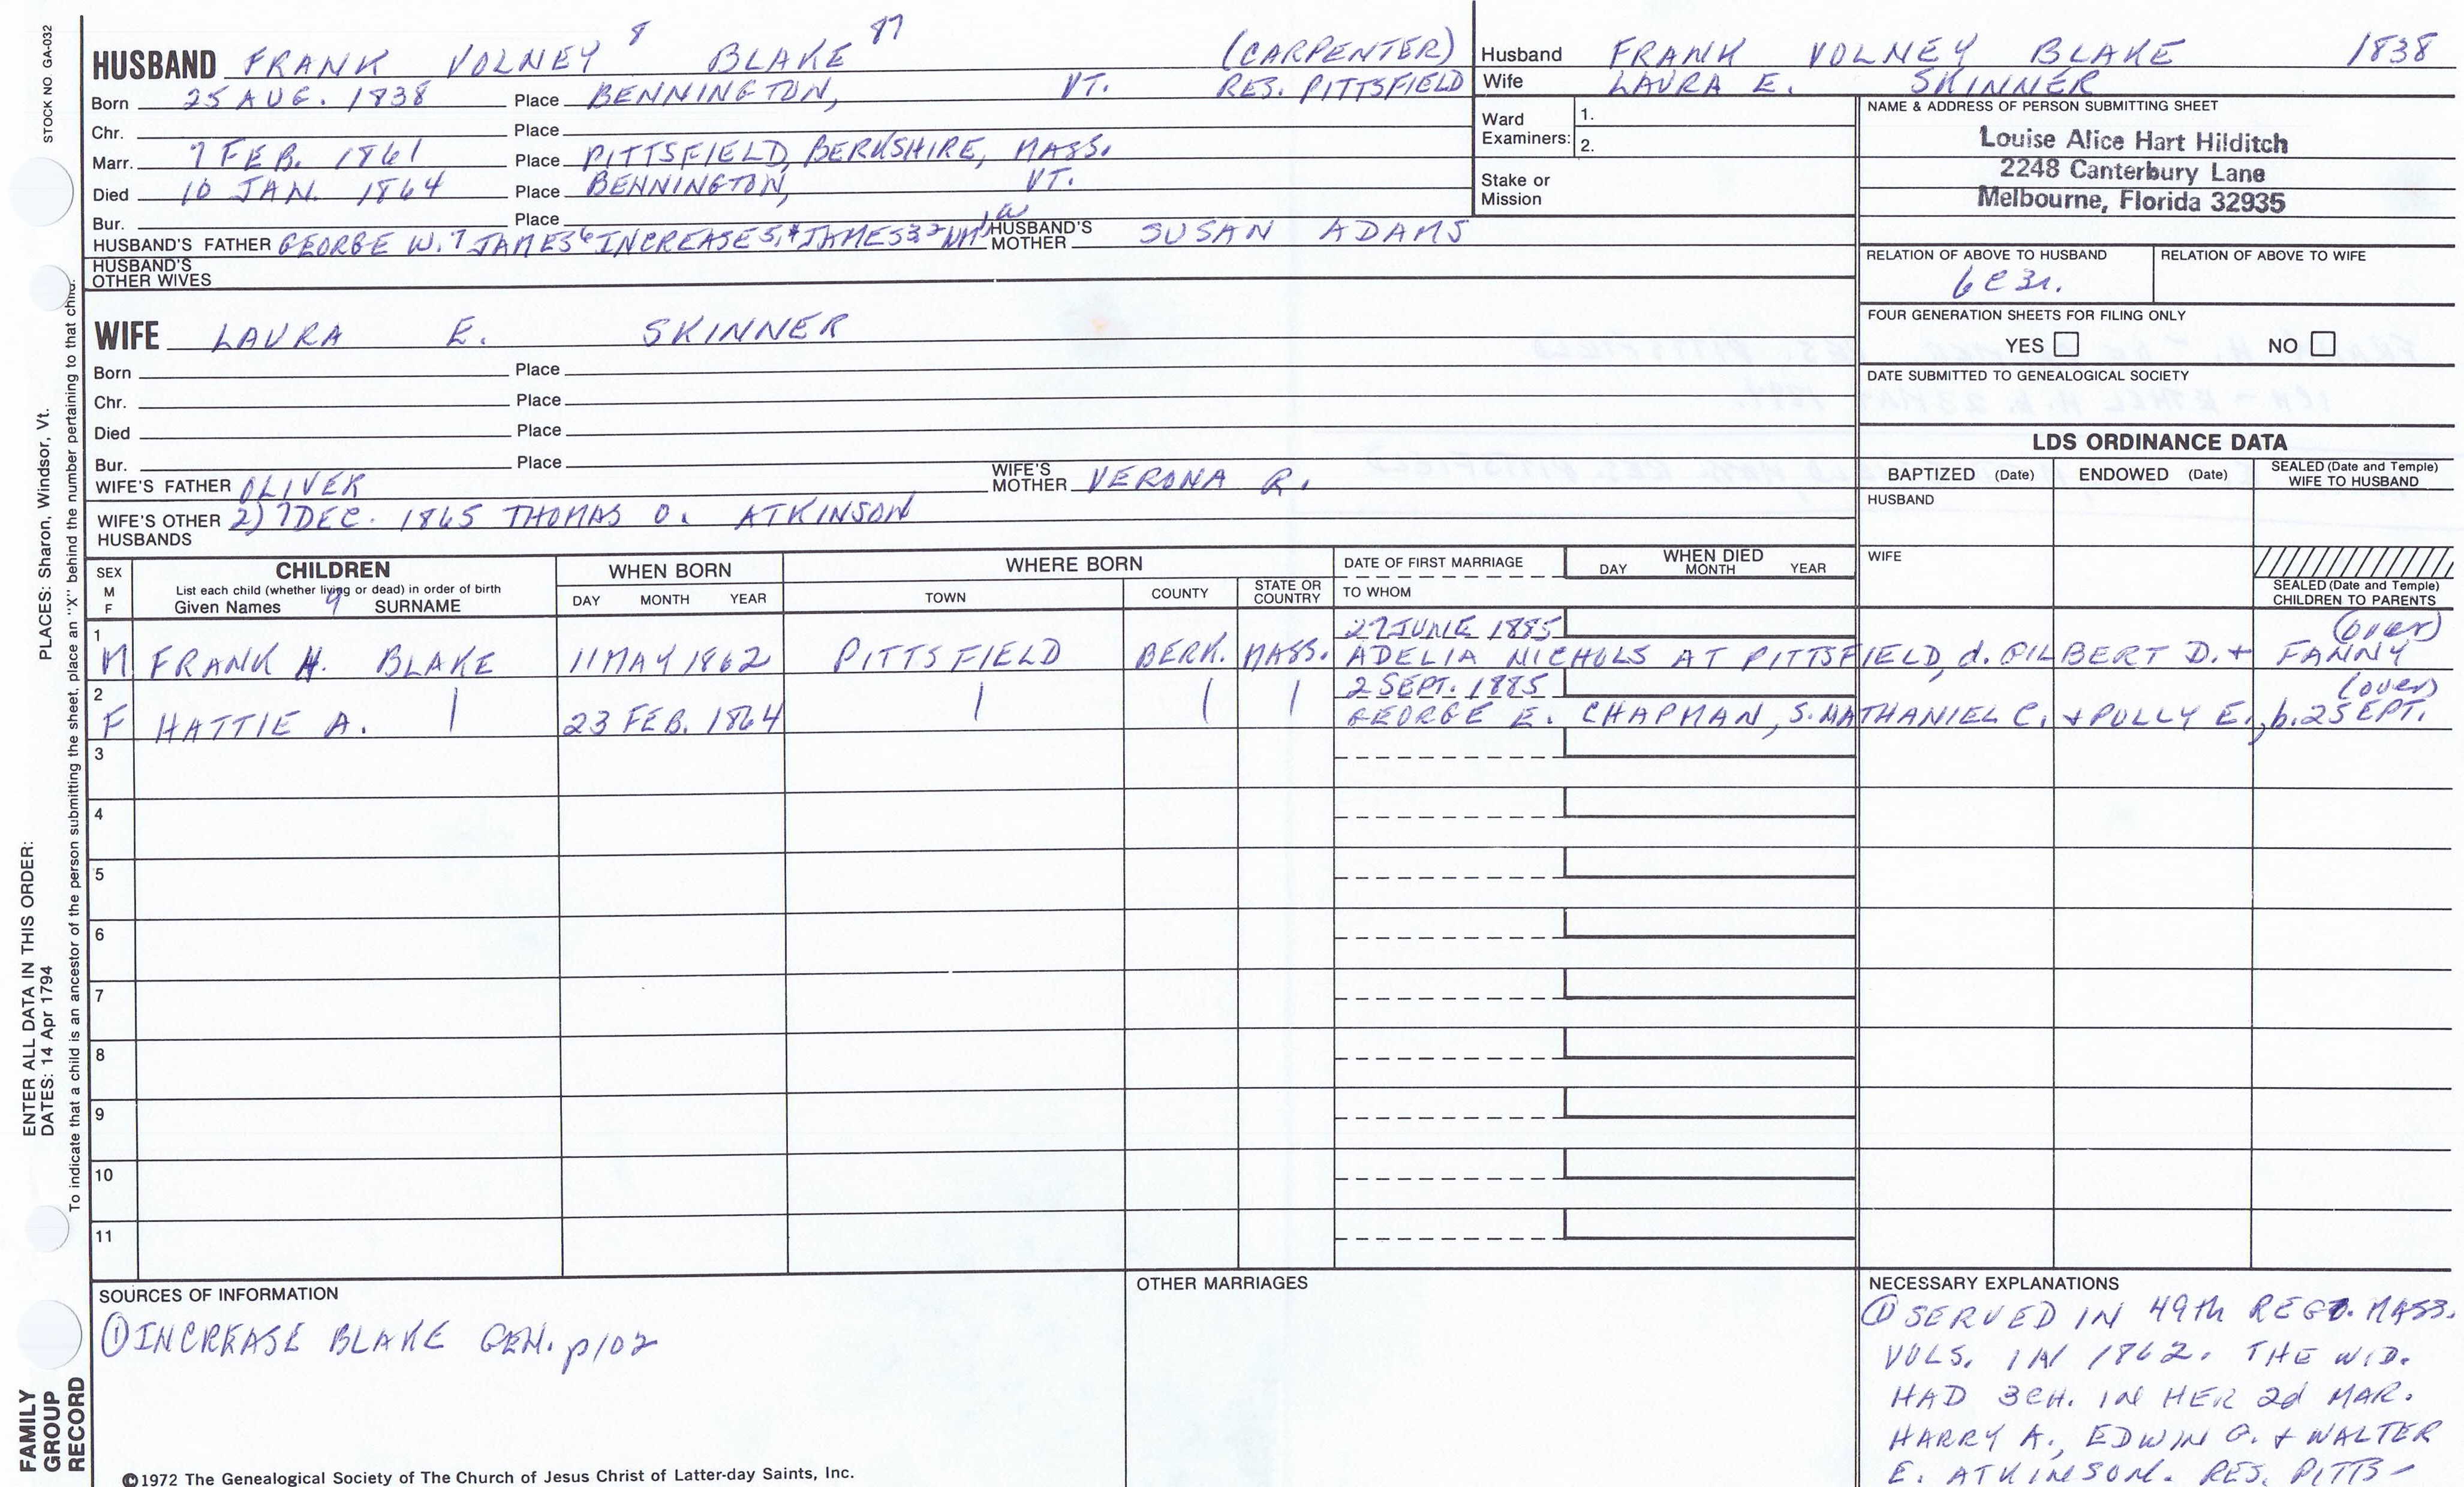 STOCK NO. GA-032
HUSBAND FRANK VOLNEY 8 BLAKE 87 (CARPENTER)
Born 25 AUG. 1838 Place BENNINGTON, VT. RES. PITTSFIELD
Chr. Place
Marr. 7 FEB. 1861 Place PITTSFIELD, BERKSHIRE, MASS.
Died 10 JAN. 1864 Place BENNINGTON, VT.
Bur. Place
HUSBAND'S FATHER GEORGE W.7 JAMES6 INCREASE5,4 JAMES3,2 WM1 a HUSBAND'S MOTHER SUSAN ADAMS
HUSBAND'S OTHER WIVES
WIFE LAURA E. SKINNER
Born Place
Chr. Place
Died Place
Bur. Place
WIFE'S FATHER OLIVER WIFE'S MOTHER VERONA R.
WIFE'S OTHER HUSBANDS 2) 7 DEC. 1865 THOMAS O. ATKINSON
Husband FRANK VOLNEY BLAKE 1838
Wife LAURA E. SKINNER
Ward Examiners: 1.
2.
Stake or Mission
NAME & ADDRESS OF PERSON SUBMITTING SHEET
Louise Alice Hart Hilditch
2248 Canterbury Lane
Melbourne, Florida 32935
RELATION OF ABOVE TO HUSBAND RELATION OF ABOVE TO WIFE
6C3r.
FOUR GENERATION SHEETS FOR FILING ONLY
YES NO
DATE SUBMITTED TO GENEALOGICAL SOCIETY
LDS ORDINANCE DATA
BAPTIZED (Date) ENDOWED (Date) SEALED (Date and Temple) WIFE TO HUSBAND
HUSBAND
WIFE
SEALED (Date and Temple) CHILDREN TO PARENTS
SEX M F CHILDREN WHEN BORN WHERE BORN DATE OF FIRST MARRIAGE WHEN DIED
List each child (whether living or dead) in order of birth
Given Names 9 SURNAME DAY MONTH YEAR TOWN COUNTY STATE OR COUNTRY TO WHOM DAY MONTH YEAR
1 27 JUNE 1885 (over)
M FRANK H. BLAKE 11 MAY 1862 PITTSFIELD BERK. MASS. ADELIA NICHOLS AT PITTSFIELD, d. GILBERT D. + FANNY
2 2 SEPT. 1885 (over)
F HATTIE A. | 23 FEB. 1864 | | | GEORGE E. CHAPMAN, S. NATHANIEL C. + POLLY E., b. 25 EPT.
3
4
5
6
7
8
9
10
11
SOURCES OF INFORMATION
① INCREASE BLAKE GEN. p102
OTHER MARRIAGES
NECESSARY EXPLANATIONS
① SERVED IN 49th REGT. MASS.
VOLS. IN 1862. THE WID.
HAD 3 CH. IN HER 2d MAR.
HARRY A., EDWIN G. + WALTER
E. ATKINSON. RES. PITTS-
©1972 The Genealogical Society of The Church of Jesus Christ of Latter-day Saints, Inc.
PLACES: Sharon, Windsor, Vt.
ENTER ALL DATA IN THIS ORDER:
DATES: 14 Apr 1794
To indicate that a child is an ancestor of the person submitting the sheet, place an "X" behind the number pertaining to that child.
FAMILY
GROUP
RECORD